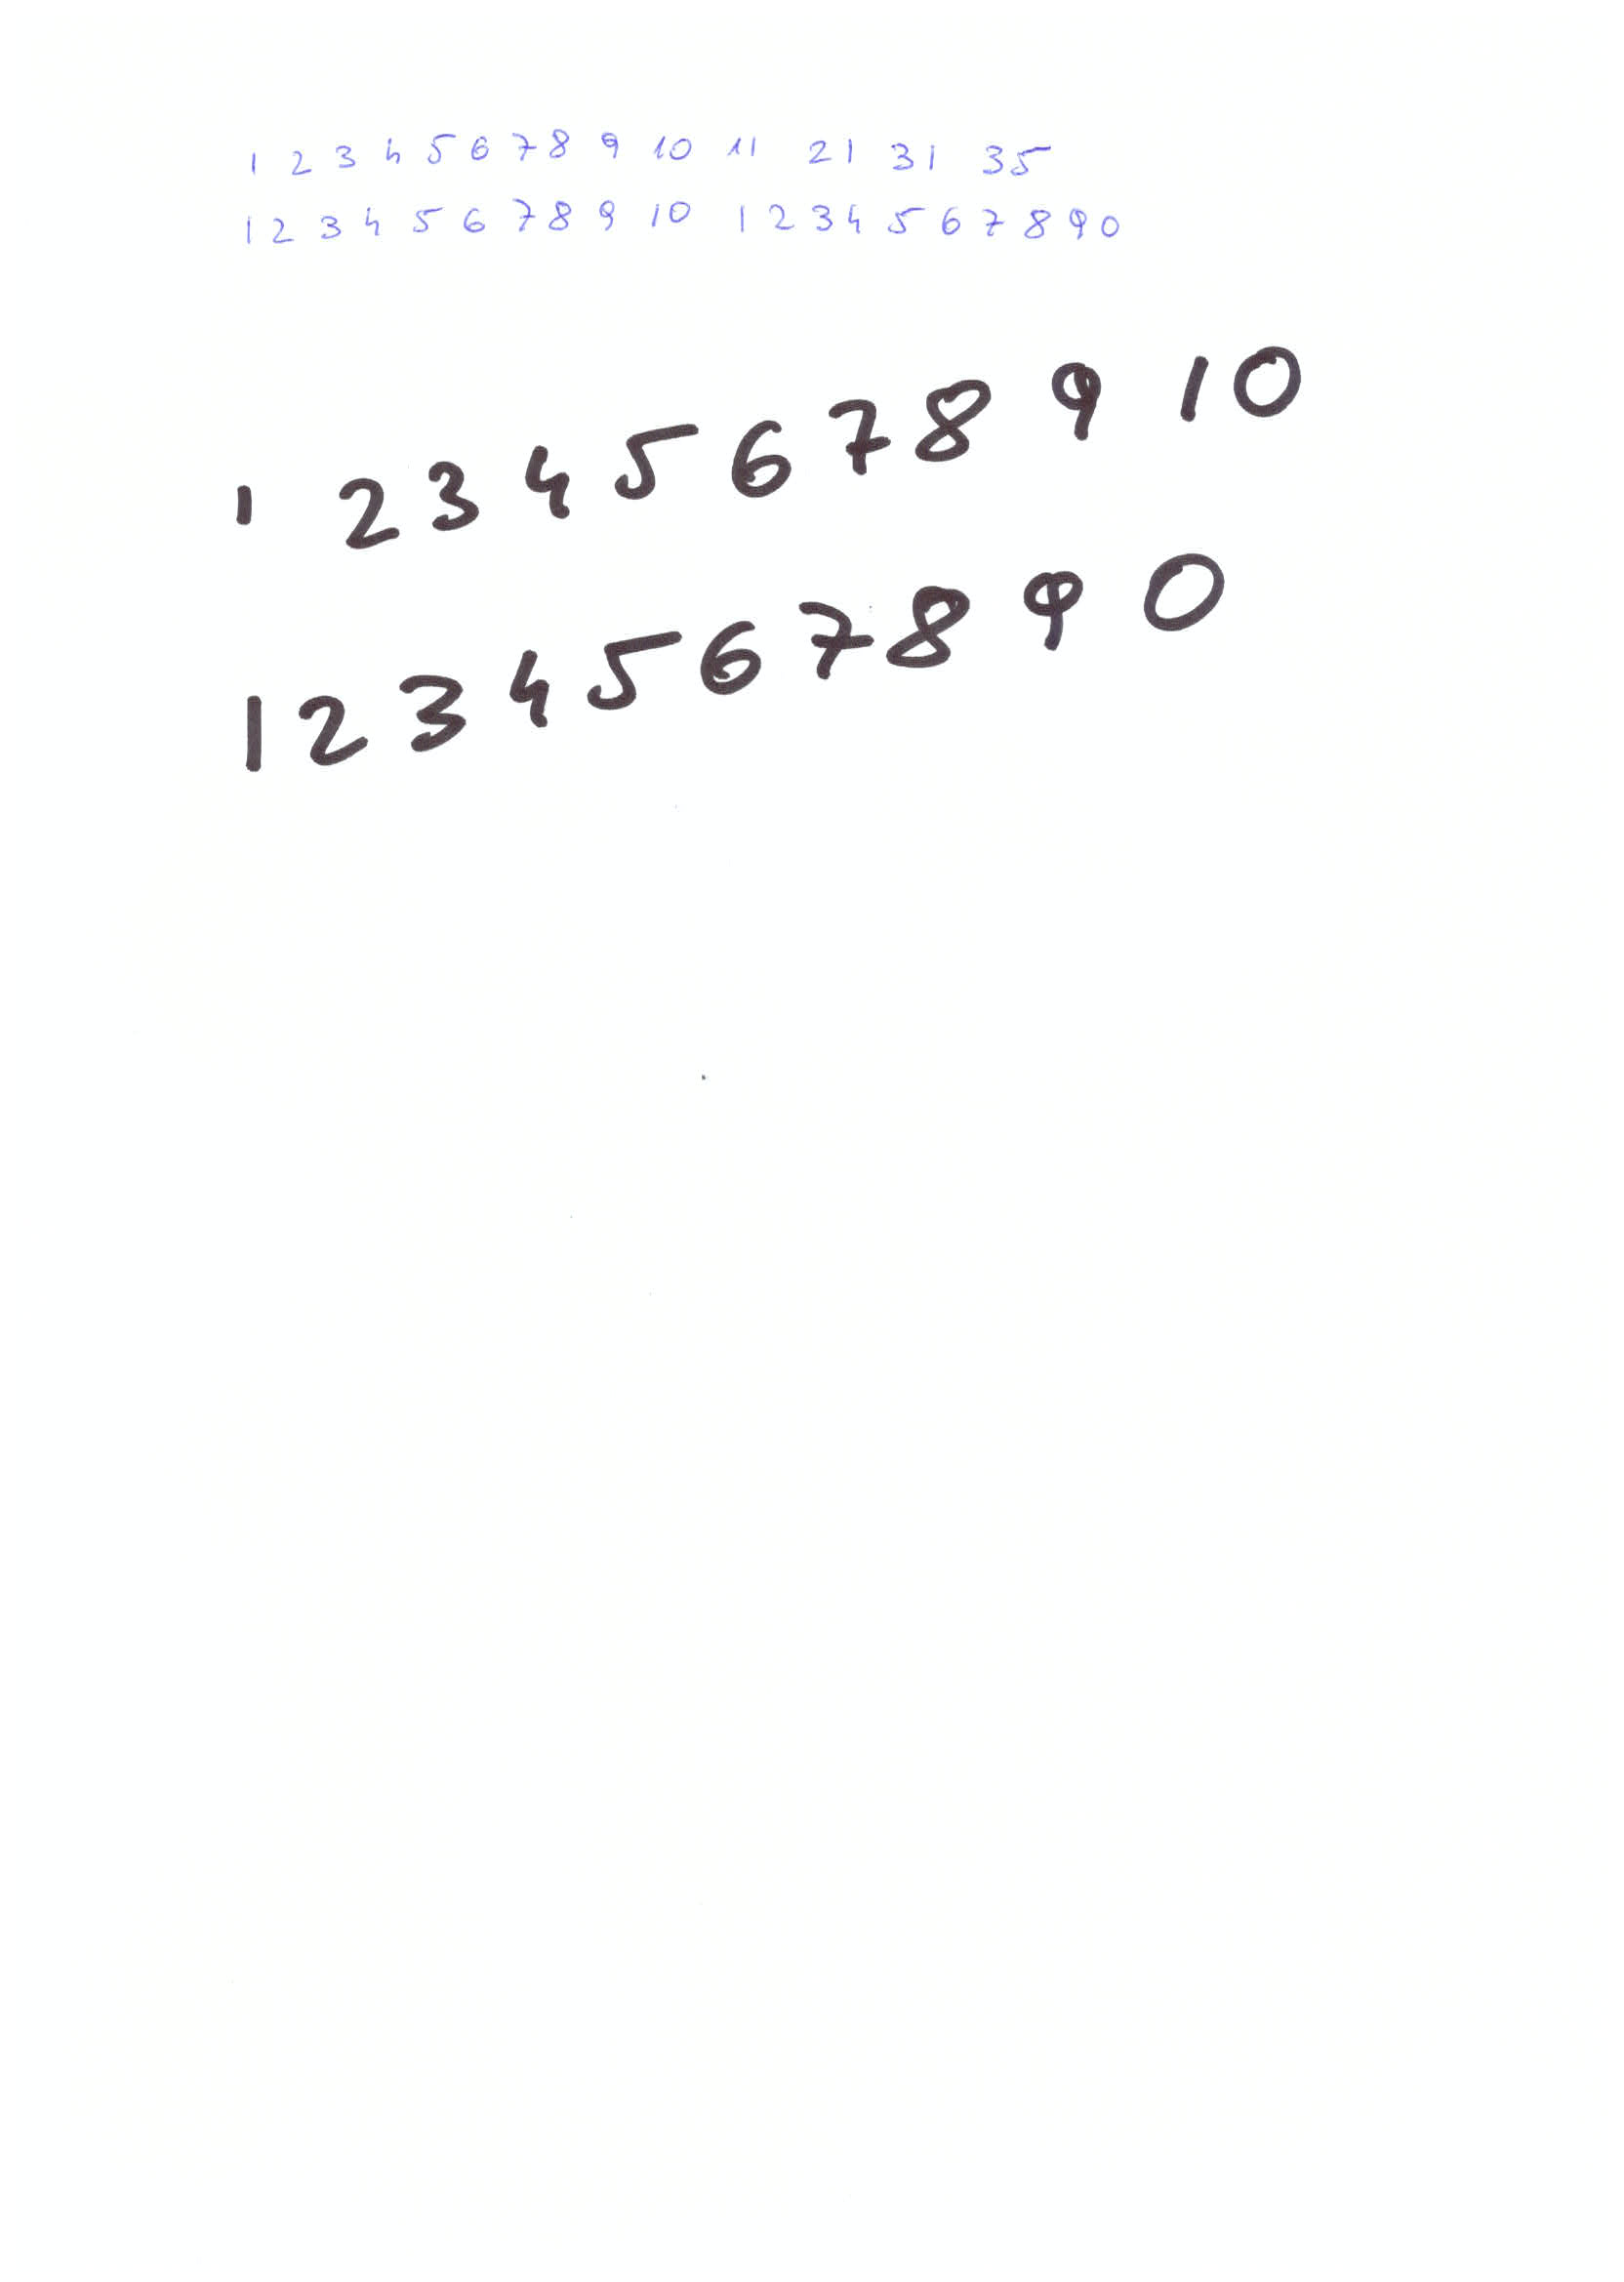 1 2 3 4 5 6 7 8 9 10 11 21 31 35
1 2 3 4 5 6 7 8 9 10 1 2 3 4 5 6 7 8 9 0
1 2 3 4 5 6 7 8 9 10
1 2 3 4 5 6 7 8 9 0